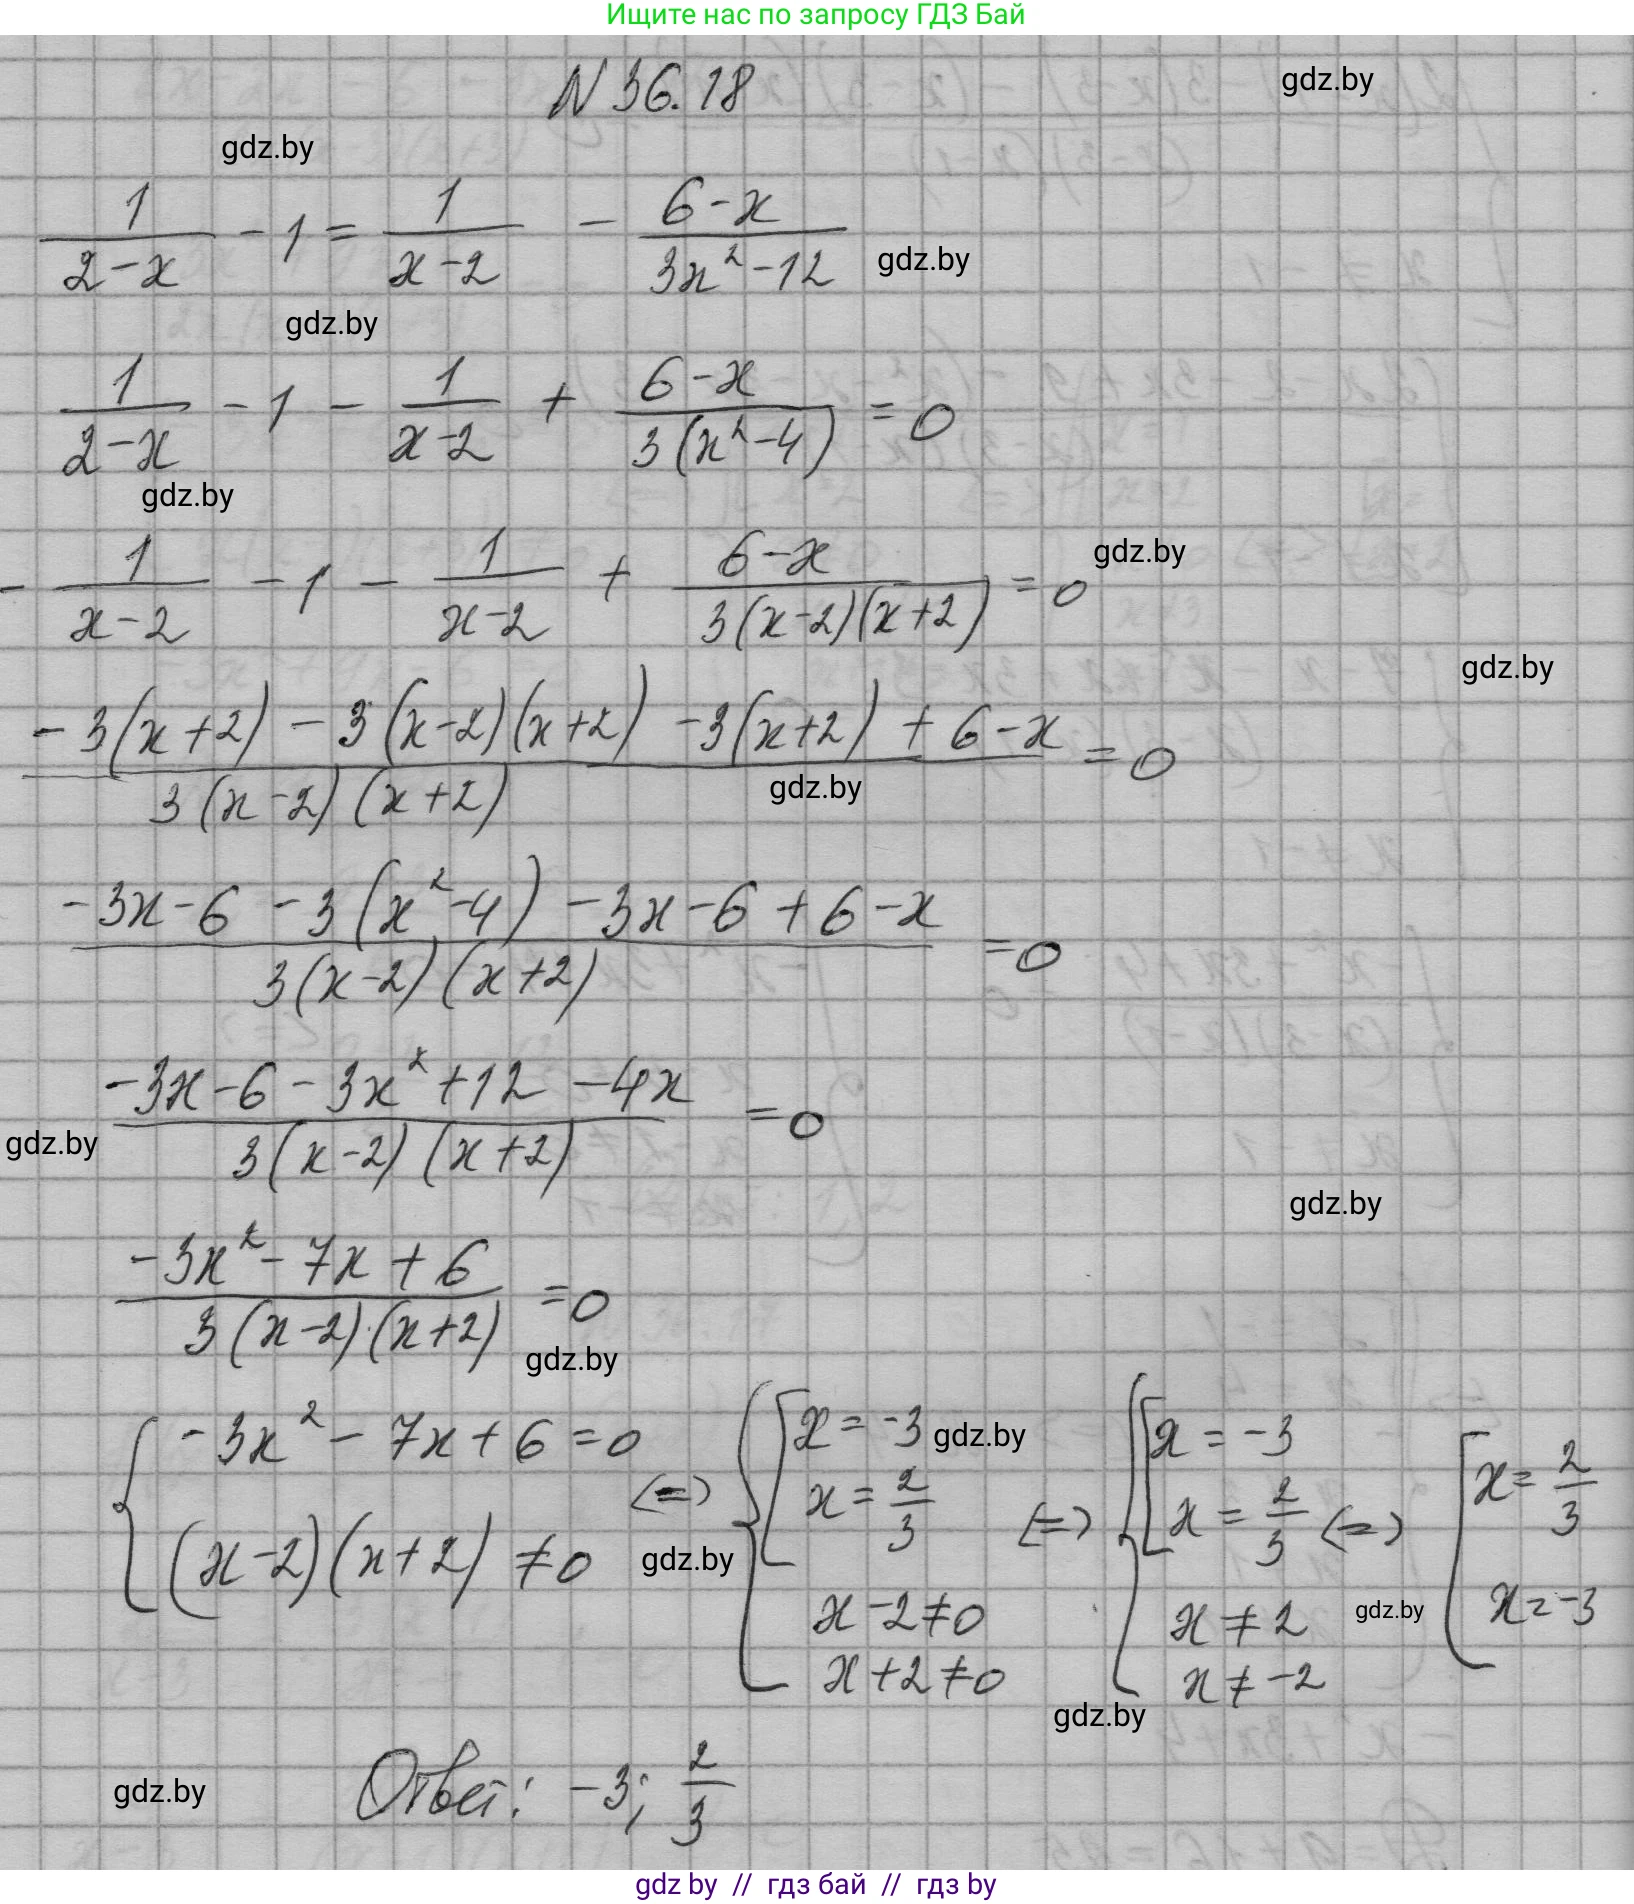 Ищите нас по запросу ГДЗ Бай
N 36.18
gdz.by
gdz.by
1/(2-x) - 1 = 1/(x-2) - (6-x)/(3x²-12)
gdz.by
gdz.by
1/(2-x) - 1 - 1/(x-2) + (6-x)/(3(x²-4)) = 0
gdz.by
-1/(x-2) - 1 - 1/(x-2) + (6-x)/(3(x-2)(x+2)) = 0
gdz.by
gdz.by
(-3(x+2) - 3(x-2)(x+2) - 3(x+2) + 6-x)/(3(x-2)(x+2)) = 0
gdz.by
(-3x-6 - 3(x²-4) - 3x-6 + 6-x)/(3(x-2)(x+2)) = 0
(-3x-6-3x²+12-4x)/(3(x-2)(x+2)) = 0
gdz.by
gdz.by
(-3x²-7x+6)/(3(x-2)·(x+2)) = 0
gdz.by
{ -3x²-7x+6=0 (x-2)(x+2)≠0 <=> { [ x=-3 x=2/3 x-2≠0 x+2≠0 <=> { [ x=-3 x=2/3 x≠2 x≠-2 <=> [ x=2/3 x=-3
gdz.by
gdz.by
gdz.by
gdz.by
Ответ: -3; 2/3
gdz.by
gdz by // гдз бай // гдз by